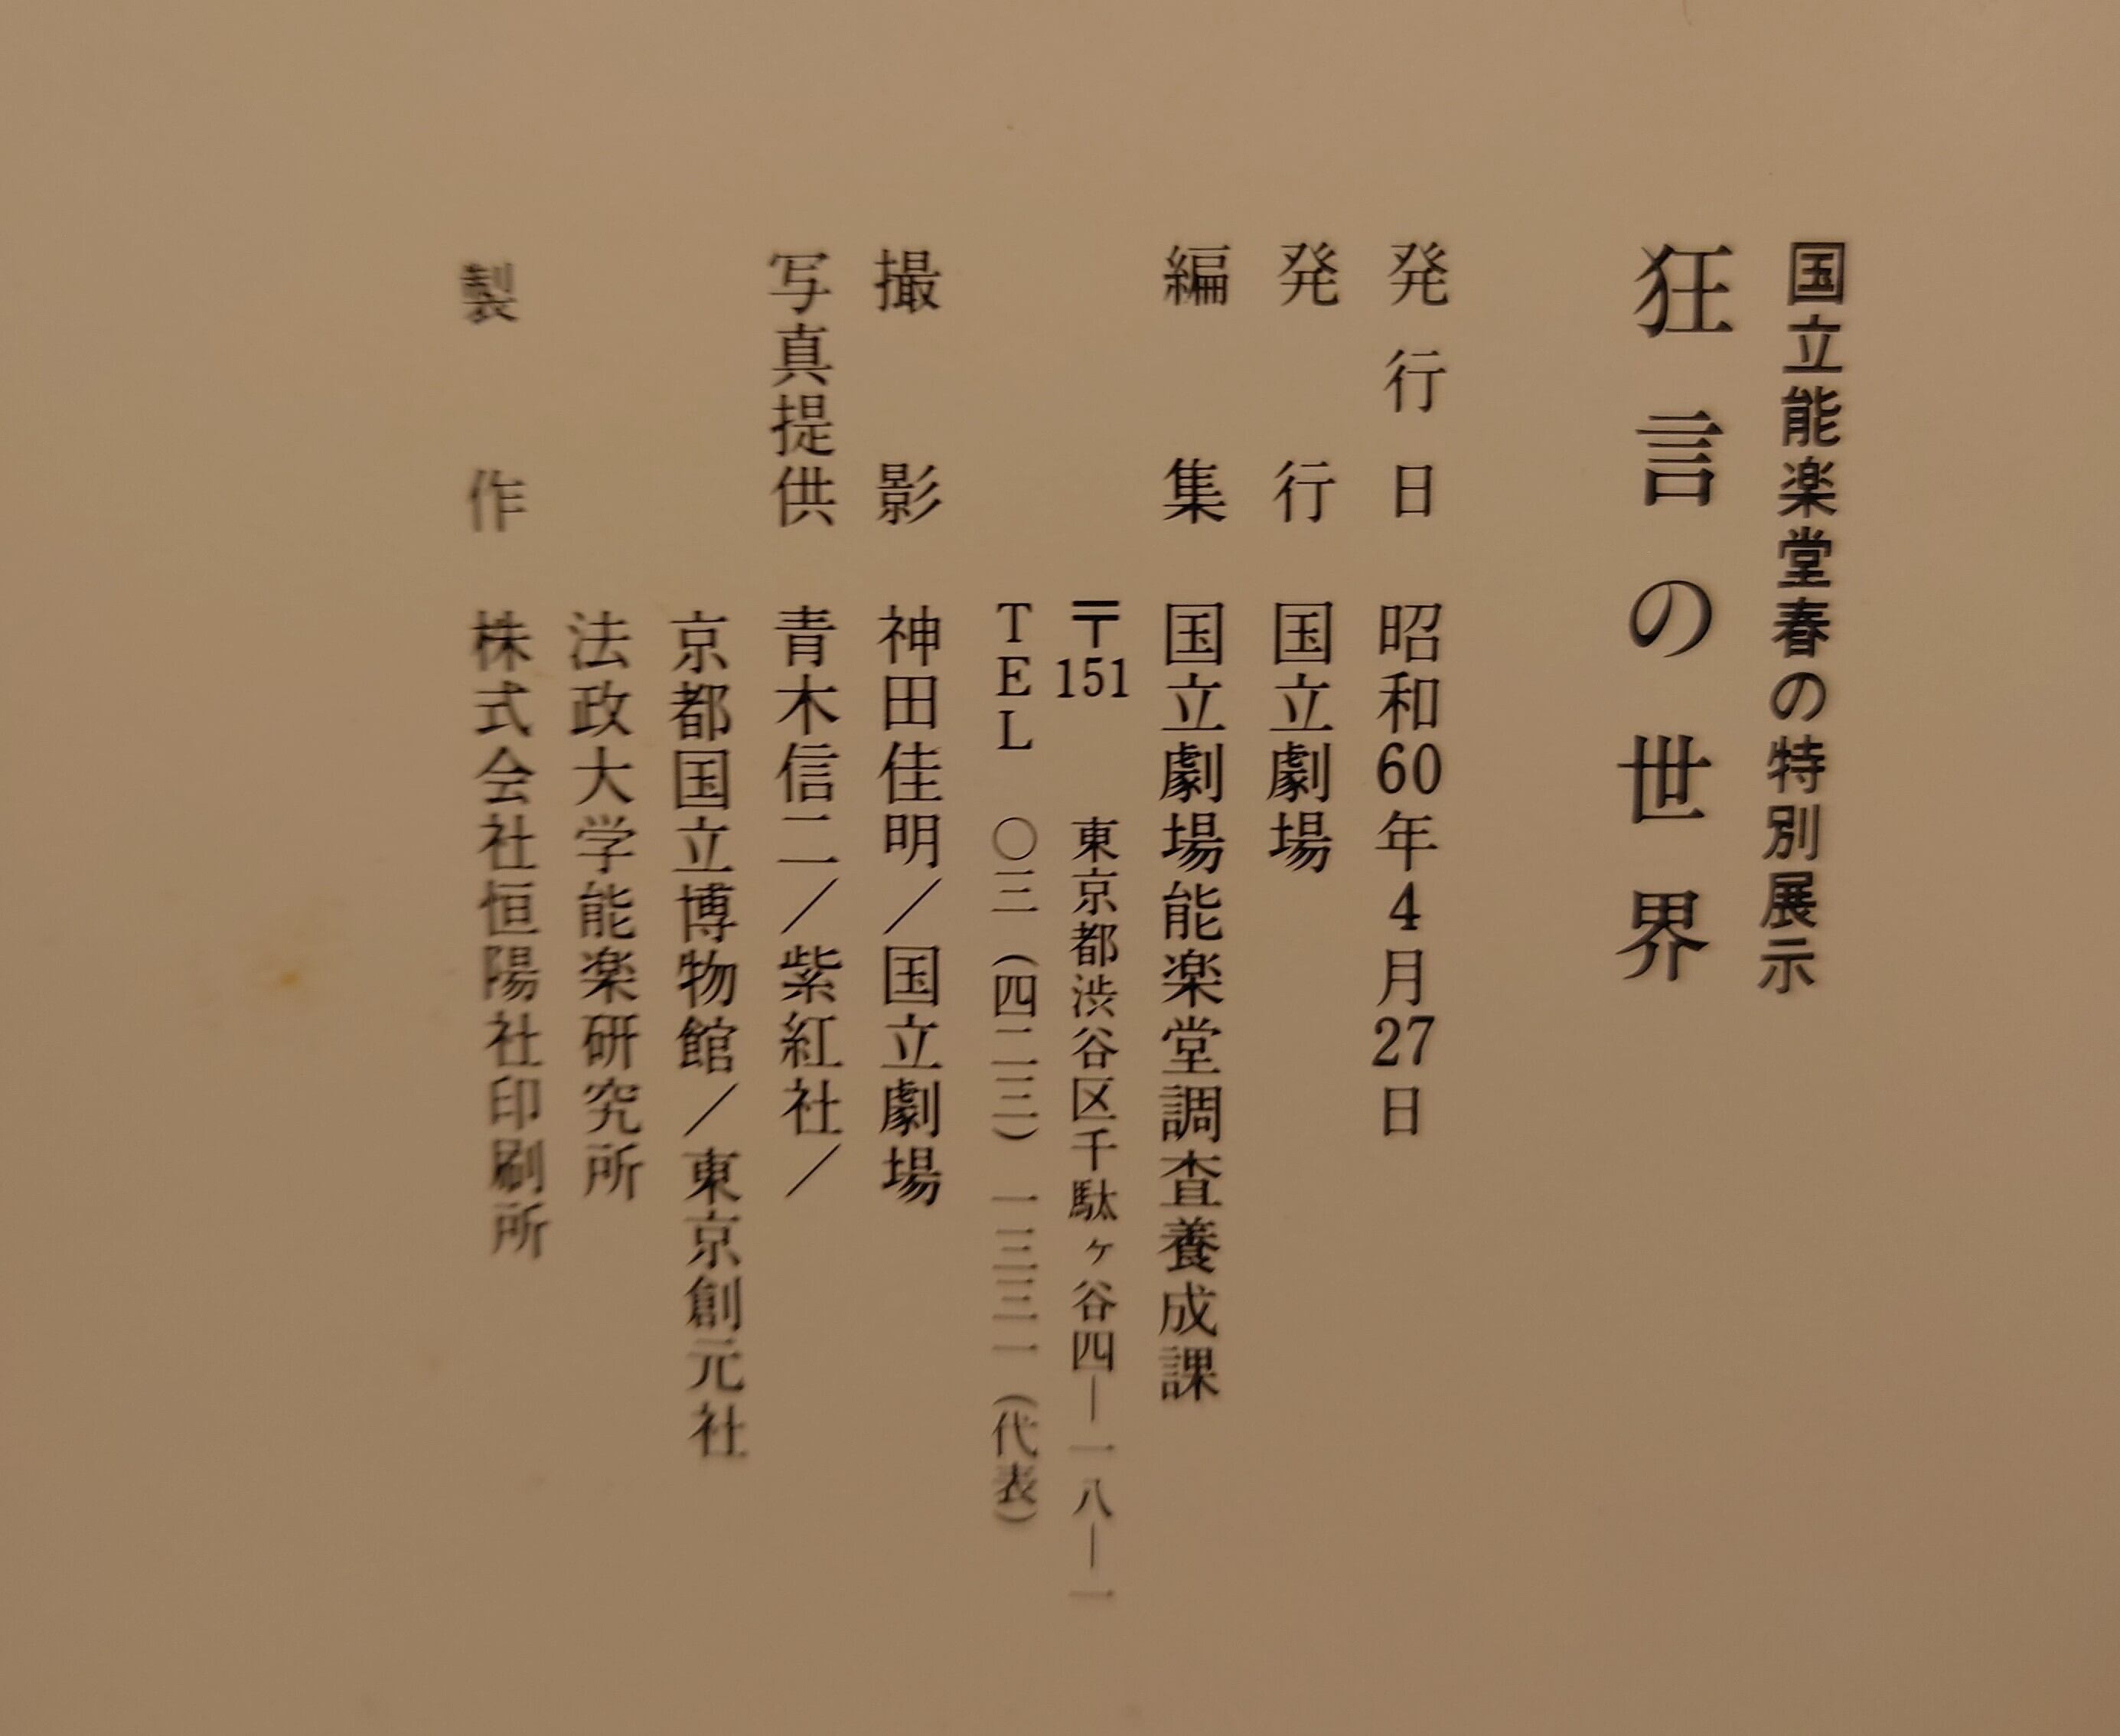 国立能楽堂春の特別展示
狂言の世界
発行日 昭和60年4月27日
発行 国立劇場
編集 国立劇場能楽堂調査養成課
〒151 東京都渋谷区千駄ヶ谷四―一八―一
TEL 〇三(四二三)一三三一(代表)
撮影 神田佳明/国立劇場
写真提供 青木信二/紫紅社/
京都国立博物館/東京創元社
法政大学能楽研究所
製作 株式会社恒陽社印刷所